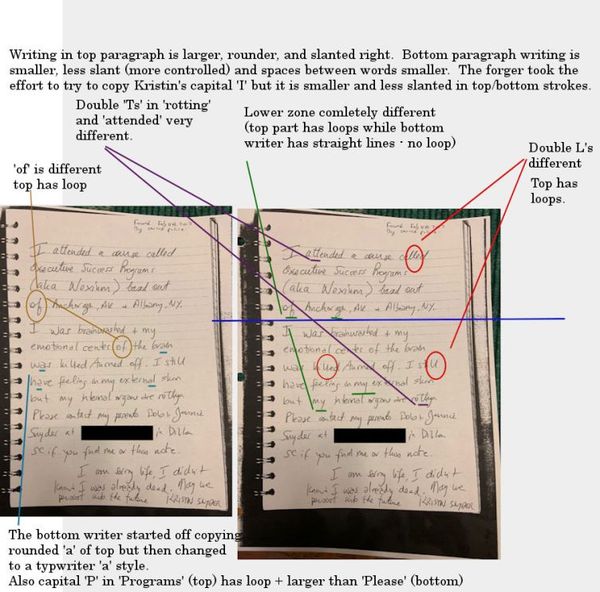 Writing in top paragraph is larger, rounder, and slanted right. Bottom paragraph writing is
smaller, less slant (more controlled) and spaces between words smaller. The forger took the
effort to try to copy Kristin's capital 'I' but it is smaller and less slanted in top/bottom strokes.
Double 'Ts' in 'rotting'
and 'attended' very
different.
Lower zone comletely different
(top part has loops while bottom
writer has straight lines - no loop)
Double L's
different
Top has
loops.
'of' is different
top has loop
I attended a course called
Executive Success Programs
(aka Nexivm) based out
of Anchorage, AK + Albany, NY.
I was brainwashed + my
emotional center of the brain
was killed/turned off. I still
have feeling in my external skin
but my internal organs are rotting
Please contact my parents
Snyder at in Dillon
SC if you find me or this note.
I am sorry life, I didn't
know I was already dead. May we
persist into the future KRISTIN SNYDER
I attended a course called
Executive Success Programs
(aka Nexivm) based out
of Anchorage, AK + Albany, NY.
I was brainwashed + my
emotional center of the brain
was killed/turned off. I still
have feeling in my external skin
but my internal organs are rotting
Please contact my parents
Snyder at in Dillon
SC if you find me or this note.
I am sorry life, I didn't
know I was already dead. May we
persist into the future KRISTIN SNYDER
The bottom writer started off copying
rounded 'a' of top but then changed
to a typewriter 'a' style.
Also capital 'P' in 'Programs' (top) has loop + larger than 'Please' (bottom)